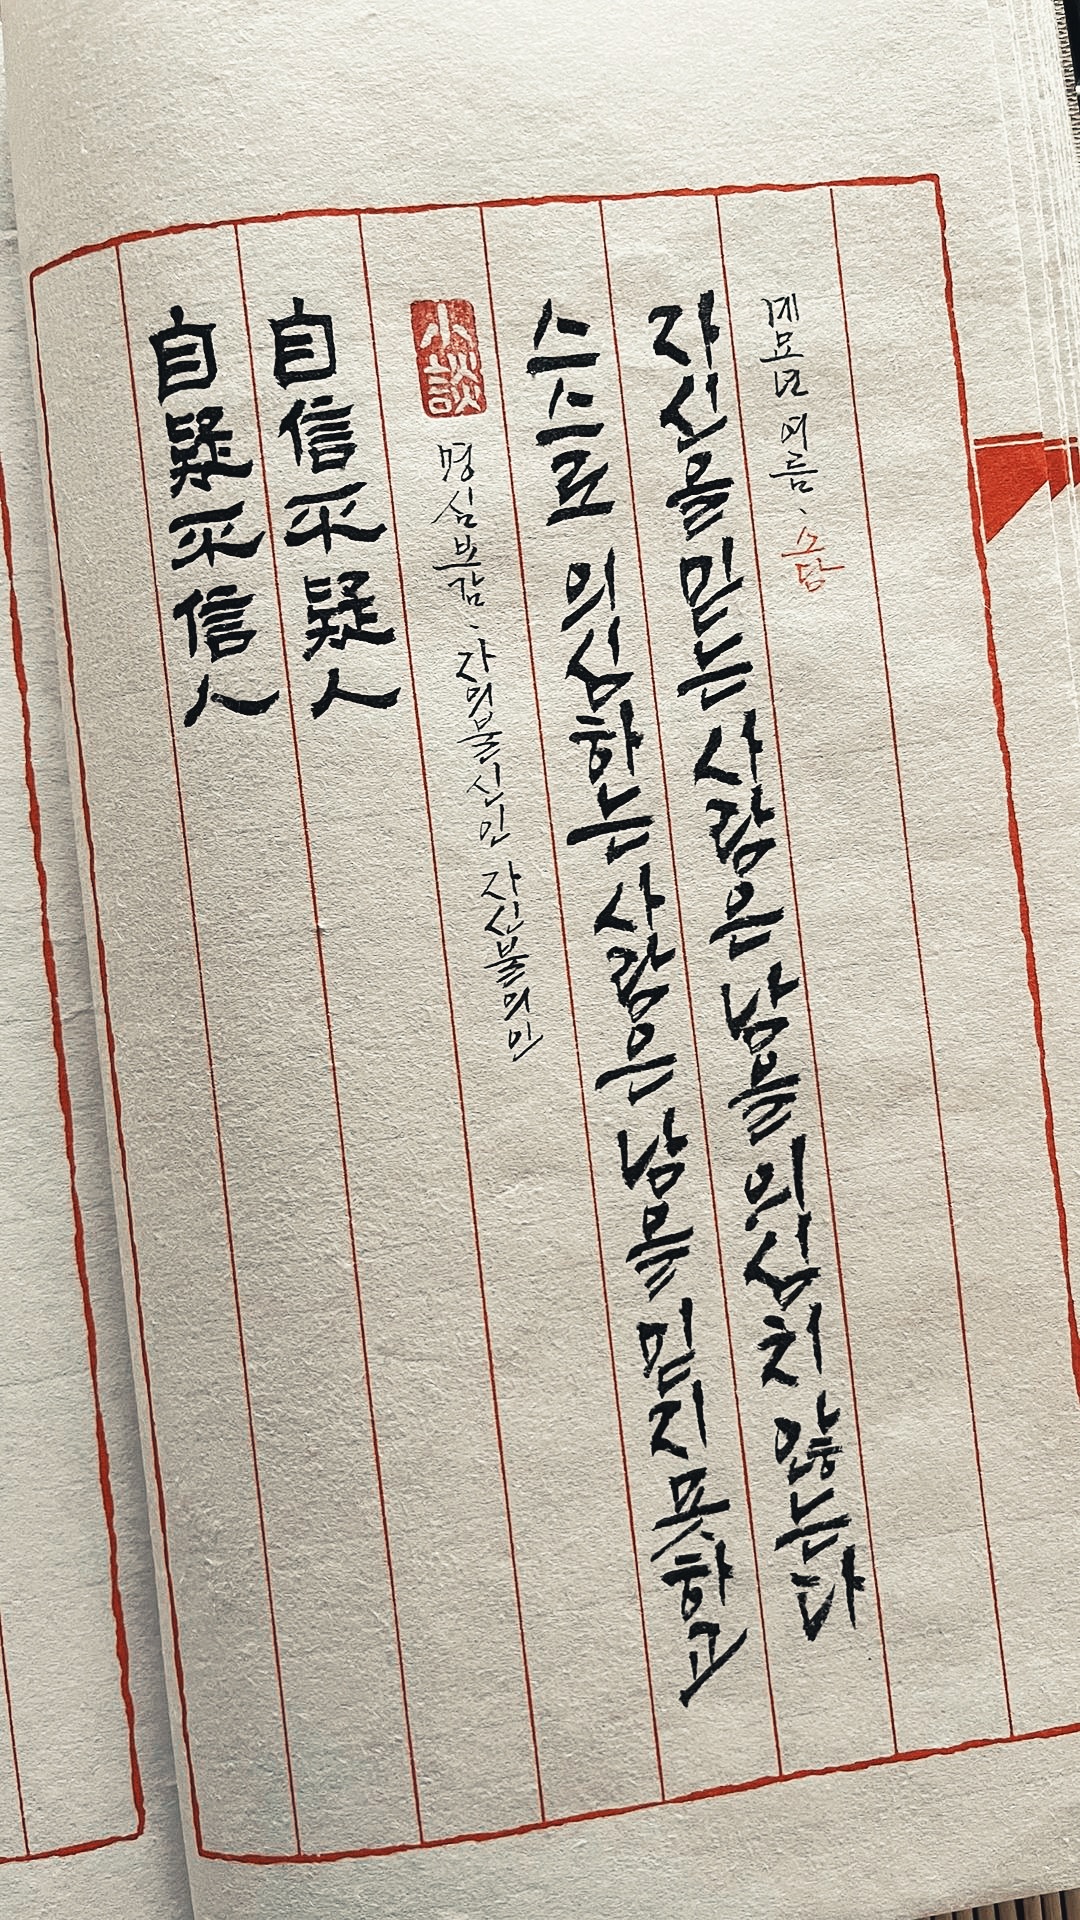 自疑不信人
自信不疑人
小談
명심보감、자의불신인 자신불의인
스스로 의심하는 사람은 남을 믿지 못하고
자신을 믿는 사람은 남을 의심치 않는다
계묘년 여름、소담